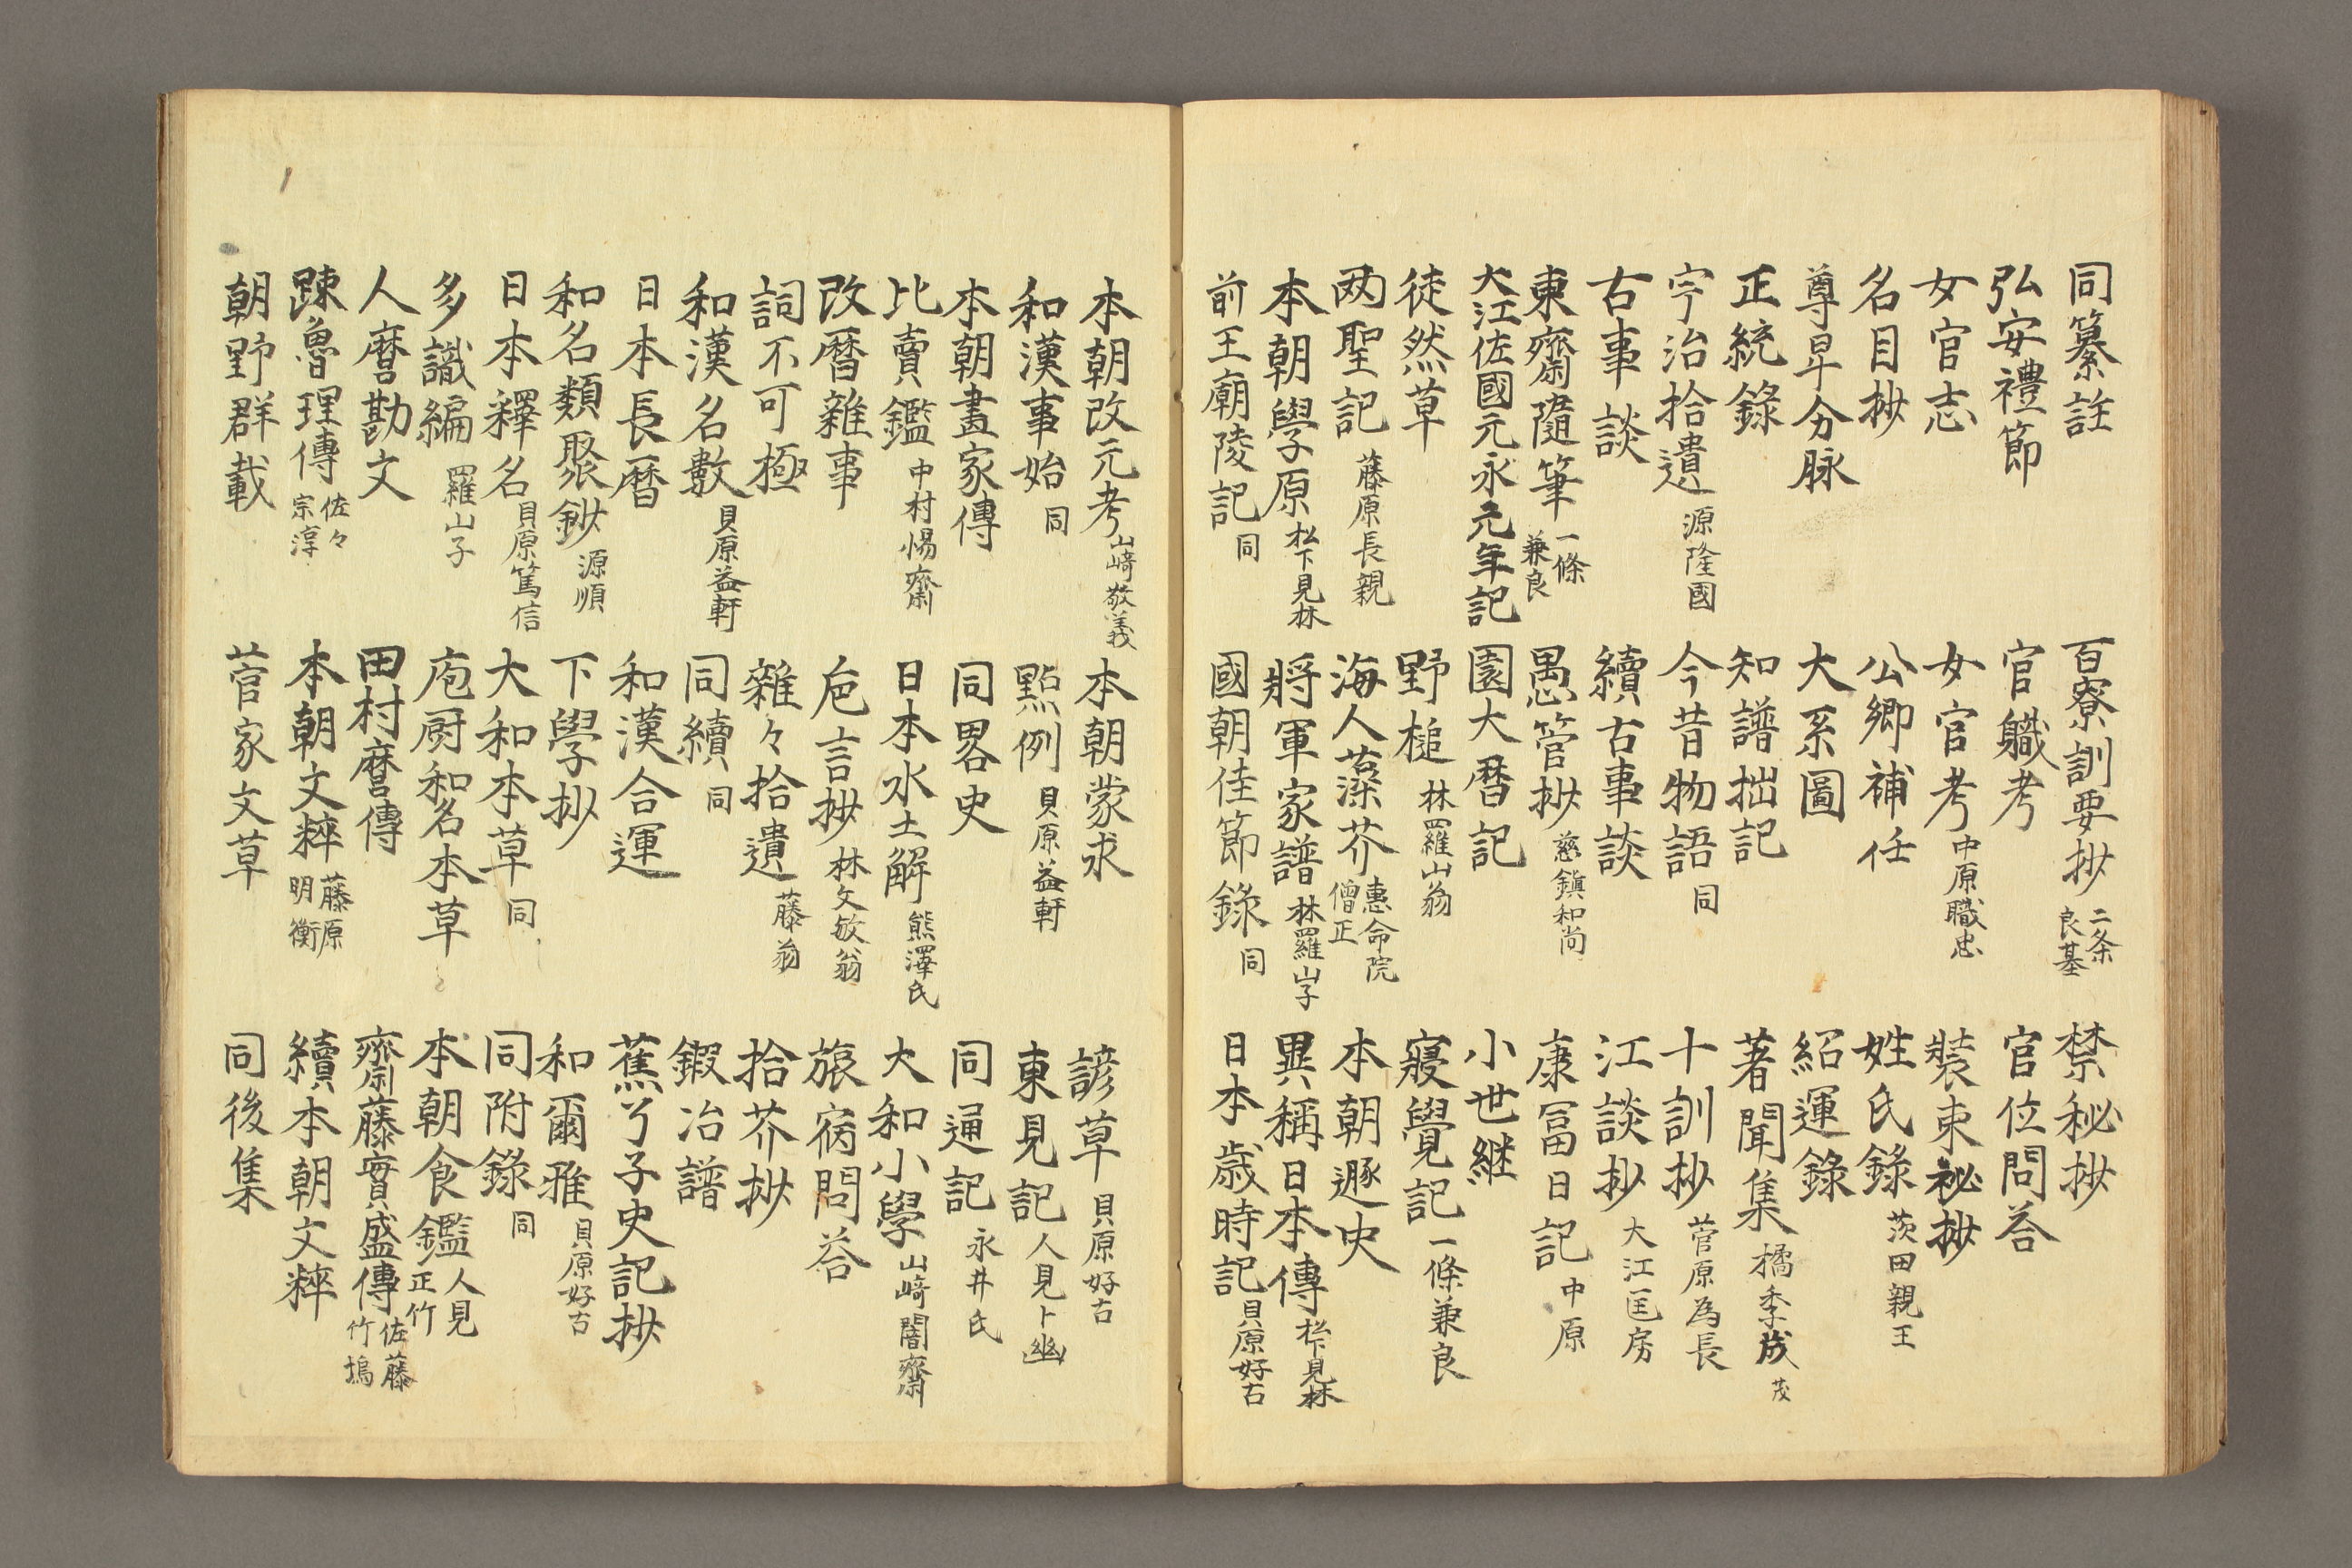 同纂註　百寮訓要抄 二条良基　禁秘抄
弘安禮節　官職考　官位問荅
女官志　女官考 中原職忠　裝束秘抄
名目抄　公卿補任　姓氏錄 茨田親王
尊卑分脉　大系圖　紹運錄
正統錄　知譜拙記　著聞集 橘季成 茂
宇治拾遺 源隆國　今昔物語 同　十訓抄 菅原為長
古事談　續古事談　江談抄 大江匡房
東齋隨筆 一條兼良　愚管抄 慈鎭和尚　康冨日記 中原
大江佐國元永元年記　園大曆記　小世継
徒然草　野槌 林羅山翁　寢覺記 一條兼良
两聖記 藤原長親　海人藻芥 惠命院僧正　本朝遯史
本朝學原 松下見林　將軍家譜 林羅山子　異稱日本傳 松下見林
前王廟陵記 同　國朝佳節錄 同　日本歳時記 貝原好古
本朝改元考 山﨑敬義　本朝蒙求　諺草 貝原好古
和漢事始 同　點例 貝原益軒　東見記 人見卜幽
本朝畫家傳　同畧史　同通記 永井氏
比賣鑑 中村惕齋　日本水土解 熊澤氏　大和小學 山﨑闇齋
改曆雜事　巵言抄 林文敏翁　旅宿問荅
詞不可極　雜々拾遺 藤翁　拾芥抄
和漢名數 貝原益軒　同續 同　鍛冶譜
日本長曆　和漢合運　蕉了子史記抄
和名類聚鈔 源順　下學抄　和爾雅 貝原好古
日本釋名 貝原篤信　大和本草 同　同附錄 同
多識編 羅山子　庖厨和名本草　本朝食鑑 人見正竹
人麿勘文　田村麿傳　齋藤實盛傳 佐藤竹塢
踈魯理傳 佐々宗淳　本朝文粹 藤原明衡　續本朝文粹
朝野群載　菅家文草　同後集